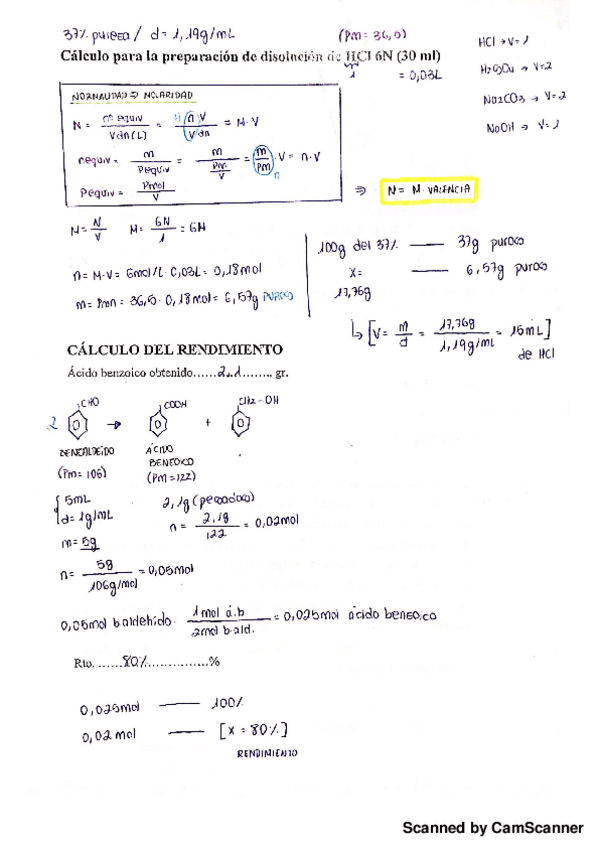 37% pureza / d= 1,19g/mL (Pm= 36,5)
Cálculo para la preparación de disolución de HCl 6N (30 ml)
1 = 0,03L
HCl → V= 1
H2SO4 → V=2
Na2CO3 → V=2
NaOH → V= 1
NORMALIDAD ⇒ MOLARIDAD
N = nº equiv / Vdn (L) = n · V / Vdn = M · V
nequiv = m / Pequiv = m / (Pm / V) = m / Pm · V = n · V
n
Pequiv = Pmol / V
⇒ N = M · VALENCIA
M = N / V M = 6N / 1 = 6M
n = M · V = 6mol/L · 0,03L = 0,18mol
m = Pm·n = 36,5 · 0,18mol = 6,57g PUROS
100g del 37% —— 37g puros
X= —— 6,57g puros
17,76g
↳ [V= m / d = 17,76g / 1,19g/mL = 15mL]
de HCl
CÁLCULO DEL RENDIMIENTO
Ácido benzoico obtenido......2.1........ gr.
2 CHO → COOH + CH2-OH
BENZALDEÍDO
(Pm= 106)
ÁCIDO
BENZOICO
(Pm=122)
5mL
d= 1g/mL
m= 5g
n= 5g / 106g/mol = 0,05mol
2,1g (pesados)
n = 2,1g / 122 = 0,02mol
0,05mol baldehido · 1mol á.b / 2mol bald. = 0,025mol ácido benzoico
Rto. ......80%...............%
0,025mol —— 100%
0,02 mol —— [X = 80%]
RENDIMIENTO
Scanned by CamScanner